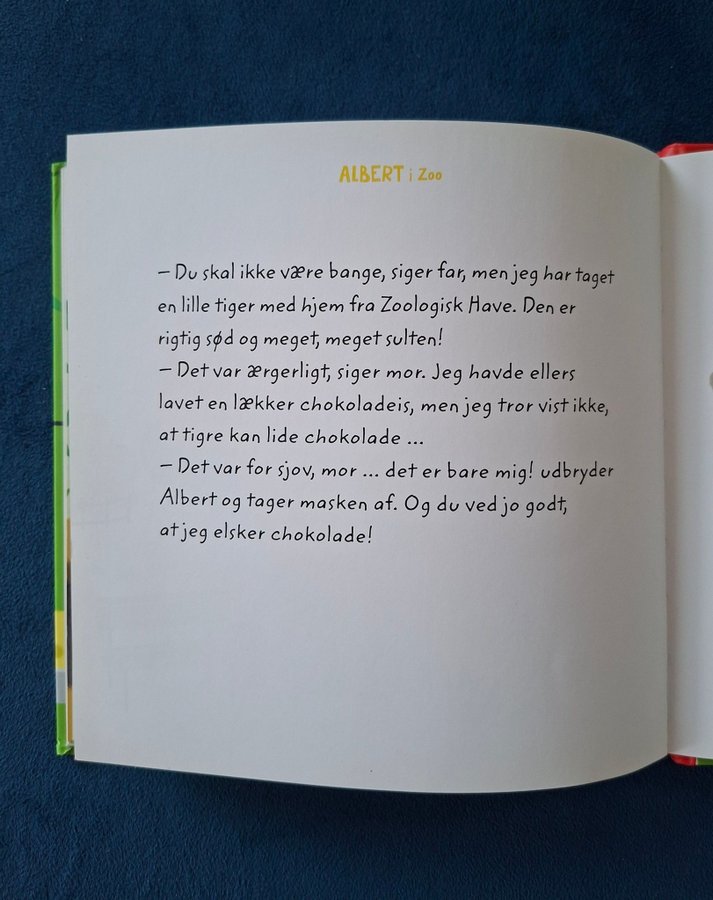 ALBERT i Zoo
– Du skal ikke være bange, siger far, men jeg har taget
en lille tiger med hjem fra Zoologisk Have. Den er
rigtig sød og meget, meget sulten!
– Det var ærgerligt, siger mor. Jeg havde ellers
lavet en lækker chokoladeis, men jeg tror vist ikke,
at tigre kan lide chokolade ...
– Det var for sjov, mor ... det er bare mig! udbryder
Albert og tager masken af. Og du ved jo godt,
at jeg elsker chokolade!